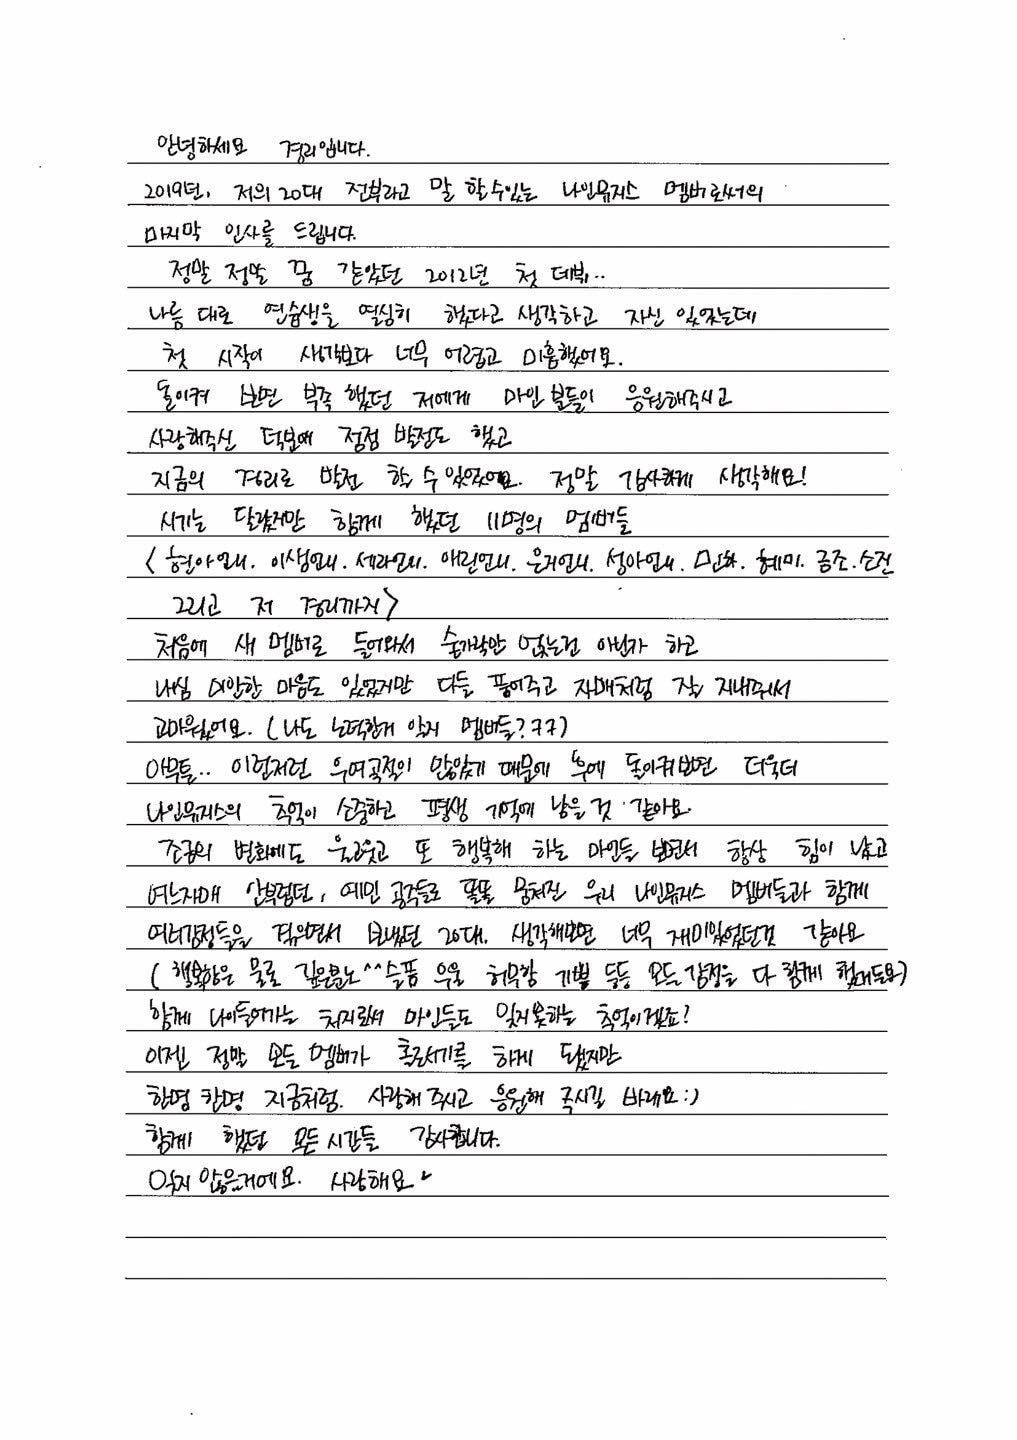 안녕하세요 경리입니다.
2019년, 저의 20대 전부라고 말 할수있는 나인뮤지스 멤버로써의
마지막 인사를 드립니다.
정말 정말 꿈 같았던 2012년 첫 데뷔..
나름 대로 연습생을 열심히 했다고 생각하고 자신 있었는데
첫 시작이 생각보다 너무 어렵고 미흡했어요.
돌이켜 보면 부족 했던 저에게 마인 분들이 응원해주시고
사랑해주신 덕분에 점점 발전도 했고
지금의 경리로 발전 할 수 있었어요. 정말 감사하게 생각해요!
시기는 달랐지만 함께 했던 11명의 멤버들
<현아언니. 이샘언니. 세라언니. 애린언니. 은지언니. 성아언니. 민하. 혜미. 금조. 소진
그리고 저 경리까지>
처음에 새 멤버로 들어와서 숟가락만 얹는건 아닌가 하고
내심 미안한 마음도 있었지만 다들 품어주고 자매처럼 잘 지내줘서
고마웠어요. (나도 노력한거 알지 멤버들? ㅋㅋ)
아무튼.. 이런저런 우여곡절이 많았기 때문에 후에 돌이켜보면 더욱더
나인뮤지스의 추억이 소중하고 평생 기억에 남을 것 같아요.
조금의 변화에도 울고웃고 또 행복해 하는 마인들 보면서 항상 힘이 났고
여느자매 안부럽던, 예민 공주들로 똘똘 뭉쳐진 우리 나인뮤지스 멤버들과 함께
여러감정들을 겪으면서 보냈던 20대. 생각해보면 너무 재미있었던것 같아요
(행복함은 물론 깊은분노^^슬픔 우울 허무함 기쁨 등등 모든 감정을 다 함께 했네요)
함께 나이들어가는 처지로써 마인들도 잊지못하는 추억이겠죠?
이젠 정말 모든 멤버가 홀로서기를 하게 됐지만
한명 한명 지금처럼. 사랑해 주시고 응원해 주시길 바래요 :)
함께 했던 모든 시간들 감사합니다.
잊지 않을거에요. 사랑해요